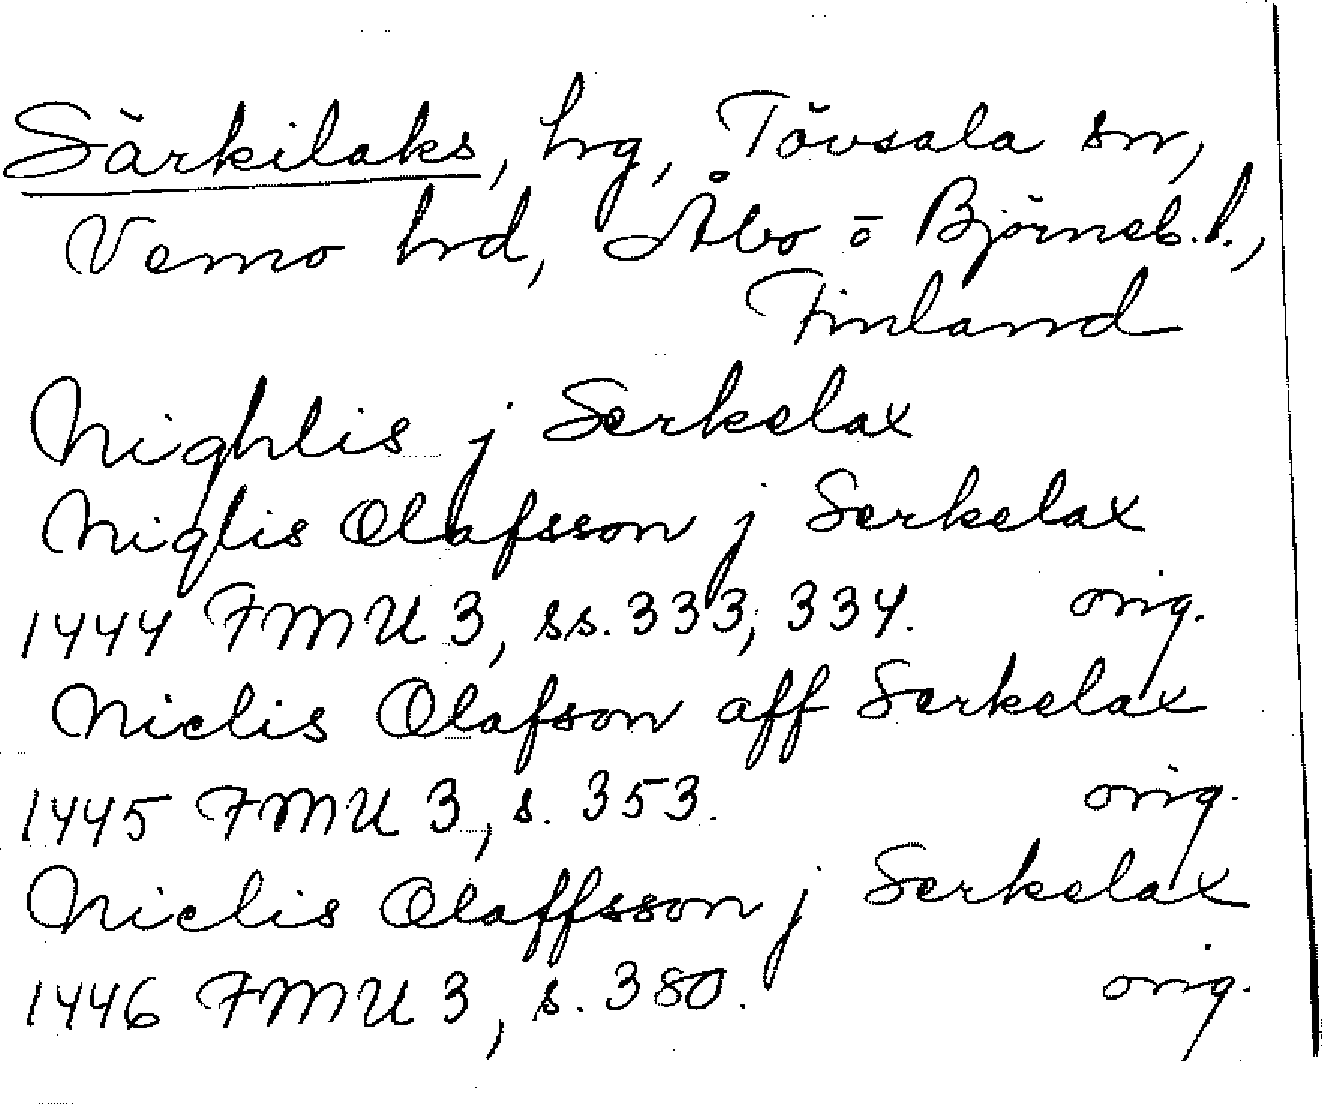 Särkilaks, hrg, Tövsala sn,
Vemo hrd, Åbo o Björneb. l.,
Finland
Nighlis j Serkelax
Niglis Olafsson j Serkelax
1444 FMU 3, ss. 333, 334. orig.
Niclis Olafson aff Serkelax
1445 FMU 3, s. 353. orig.
Niclis Olaffsson j Serkelax
1446 FMU 3, s. 380. orig.